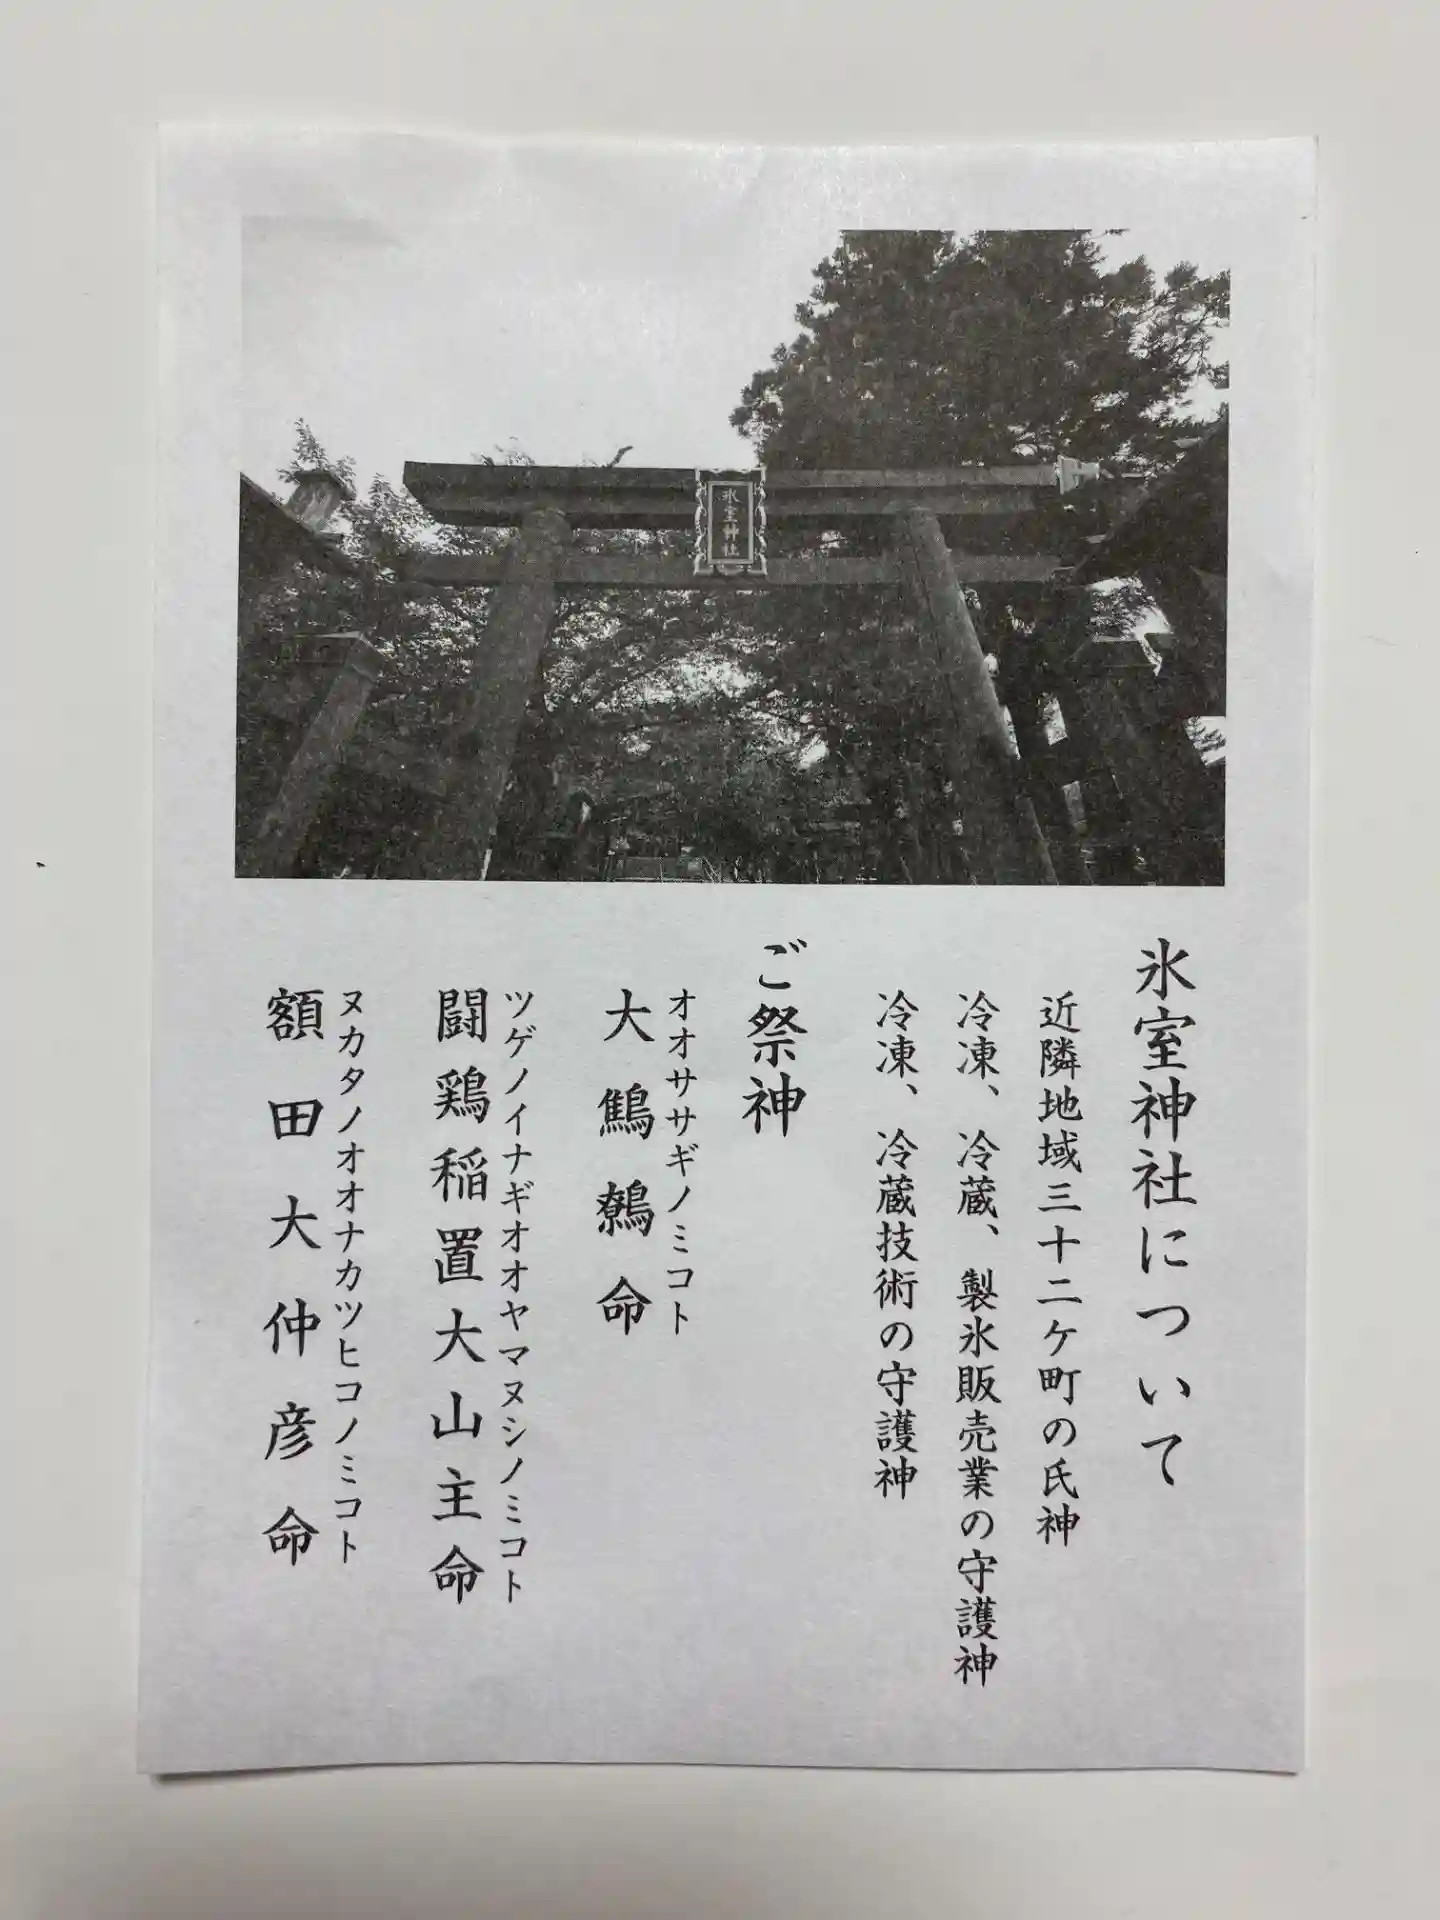 氷室神社
氷室神社について
近隣地域三十二ケ町の氏神
冷凍、冷蔵、製氷販売業の守護神
冷凍、冷蔵技術の守護神
ご祭神
オオササギノミコト
大鷦鷯命
ツゲノイナギオオヤマヌシノミコト
闘鶏稲置大山主命
ヌカタノオオナカツヒコノミコト
額田大仲彦命